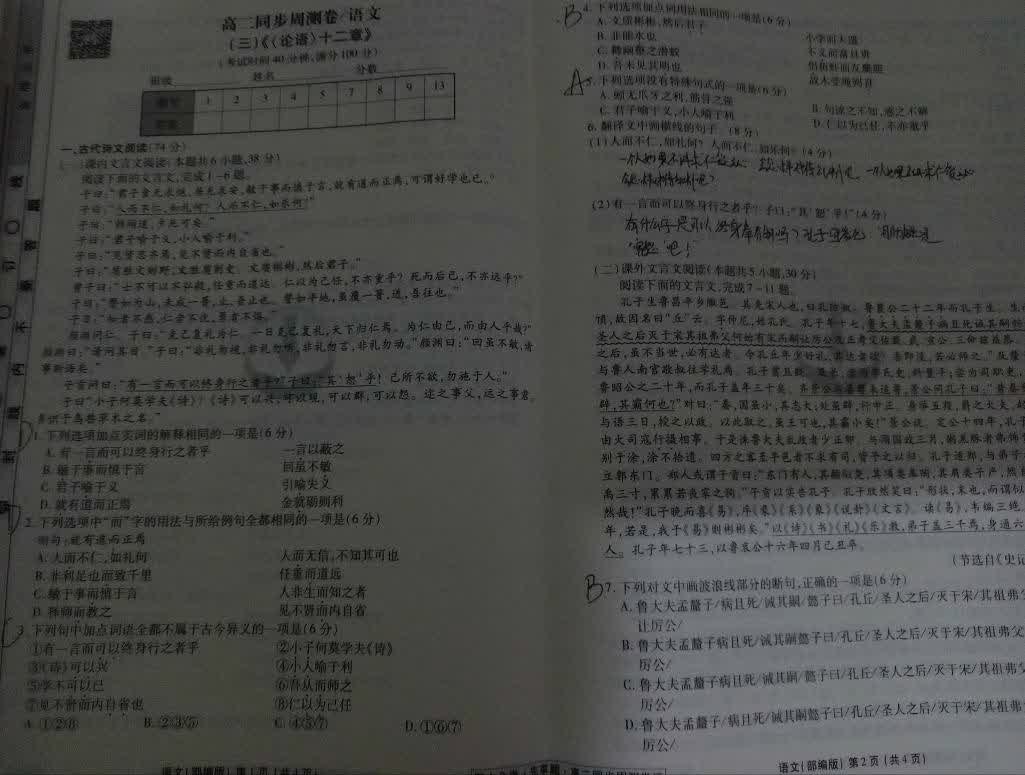 高二同步周测卷/语文
(三)《〈论语〉十二章》
(考试时间40分钟,满分100分)
班级 姓名 分数
题号 1 2 3 4 5 7 8 9 13
答案
一、古代诗文阅读(74分)
(一)课内文言文阅读(本题共6小题,38分)
阅读下面的文言文,完成1~6题。
子曰:“君子食无求饱,居无求安,敏于事而慎于言,就有道而正焉,可谓好学也已。”
子曰:“人而不仁,如礼何?人而不仁,如乐何?”
子曰:“朝闻道,夕死可矣。”
子曰:“君子喻于义,小人喻于利。”
子曰:“见贤思齐焉,见不贤而内自省也。”
子曰:“质胜文则野,文胜质则史。文质彬彬,然后君子。”
曾子曰:“士不可以不弘毅,任重而道远。仁以为己任,不亦重乎?死而后已,不亦远乎?”
子曰:“譬如为山,未成一篑,止,吾止也。譬如平地,虽覆一篑,进,吾往也。”
子曰:“知者不惑,仁者不忧,勇者不惧。”
颜渊问仁。子曰:“克己复礼为仁。一日克己复礼,天下归仁焉。为仁由己,而由人乎哉?”
颜渊曰:“请问其目。”子曰:“非礼勿视,非礼勿听,非礼勿言,非礼勿动。”颜渊曰:“回虽不敏,请
事斯语矣。”
子贡问曰:“有一言而可以终身行之者乎?”子曰:“其‘恕’乎!己所不欲,勿施于人。”
子曰“小子何莫学夫《诗》?《诗》可以兴,可以观,可以群,可以怨。迩之事父,远之事君,
多识于鸟兽草木之名。”
1.下列选项加点实词的解释相同的一项是(6分)
A.有一言而可以终身行之者乎 一言以蔽之
B.敏于事而慎于言 回虽不敏
C.君子喻于义 引喻失义
D.就有道而正焉 金就砺则利
2.下列选项中“而”字的用法与所给例句全都相同的一项是(6分)
例句:就有道而正焉
A.人而不仁,如礼何 人而无信,不知其可也
B.非利足也而致千里 任重而道远
C.敏于事而慎于言 人非生而知之者
D.择师而教之 见不贤而内自省
3.下列句中加点词语全都不属于古今异义的一项是(6分)
①有一言而可以终身行之者乎 ②小子何莫学夫《诗》
③《诗》可以兴 ④小人喻于利
⑤学不可以已 ⑥吾从而师之
⑦见不贤而内自省也 ⑧仁以为己任
A.①②⑧ B.②③⑤ C.④⑤⑦ D.①⑥⑦
语文(部编版) 第1页(共4页)
B 4.下列选项加点词用法相同的一项是(6分)
A.文质彬彬,然后君子 小学而大遗
B.非能水也 不义而富且贵
C.舞幽壑之潜蛟 侣鱼虾而友麋鹿
D.吾未见其明也
A 5.下列选项没有特殊句式的一项是(6分)
A.蚓无爪牙之利,筋骨之强 B.句读之不知,惑之不解
C.君子喻于义,小人喻于利 D.仁以为己任,不亦重乎
6.翻译文中画横线的句子。(8分)
(1)人而不仁,如礼何?人而不仁,如乐何?(4分)
(2)有一言而可以终身行之者乎?子曰:“其‘恕’乎!”(4分)
(二)课外文言文阅读(本题共5小题,30分)
阅读下面的文言文,完成7~11题。
孔子生鲁昌平乡陬邑。其先宋人也,曰孔防叔。鲁襄公二十二年而孔子生。生
顶,故因名曰“丘”云。字仲尼,姓孔氏。孔子年十七,鲁大夫孟釐子病且死诫其嗣懿
圣人之后灭于宋其祖弗父何始有宋而嗣让厉公
之后,虽不当世,必有达者。今孔丘年少好礼,其达者欤?吾即没,若必师之。”
与鲁人南宫敬叔往学礼焉。孔子贫且贱。
鲁昭公之二十年,而孔子盖年三十矣。齐景公与晏婴来适鲁,景公问孔子曰:“昔秦
辟,其霸何也?”对曰:“秦,国虽小,其志大;处虽辟,行中正。身举五羖,爵之大夫,
与语三日,授之以政。以此取之,虽王可也,其霸小矣!”景公说。定公十四年,孔子
由大司寇行摄相事。于是诛鲁大夫乱政者少正卯。与闻国政三月,粥羔豚者弗饰
别于涂,涂不拾遗。四方之客至乎邑者不求有司,皆予之以归。孔子适郑,与弟子
立郭东门。郑人或谓子贡曰:“东门有人,其颡似尧,其项类皋陶,其肩类子产,然
禹三寸,累累若丧家之狗。”子贡以实告孔子。孔子欣然笑曰:“形状,末也。而谓似
然哉!”孔子晚而喜《易》,序《彖》《系》《象》《说卦》《文言》。读《易》,韦编三绝。
年,若是,我于《易》则彬彬矣。”以《诗》《书》《礼》《乐》教,弟子盖三千焉,身通六
人。孔子年七十三,以鲁哀公十六年四月己丑卒。
(节选自《史记
B 7.下列对文中画波浪线部分的断句,正确的一项是(6分)
A.鲁大夫孟釐子/病且死/诫其嗣/懿子曰/孔丘/圣人之后/灭于宋/其祖弗父
让厉公/
B.鲁大夫孟釐子病且死/诫其嗣懿子曰/孔丘/圣人之后/灭于宋/其祖弗父
厉公/
C.鲁大夫孟釐子病且死/诫其嗣/懿子曰/孔丘/圣人之后/灭于宋/其祖弗父
厉公/
D.鲁大夫孟釐子/病且死/诫其嗣懿子曰/孔丘/圣人之后/灭于宋/其祖弗
厉公/
语文(部编版) 第2页(共4页)